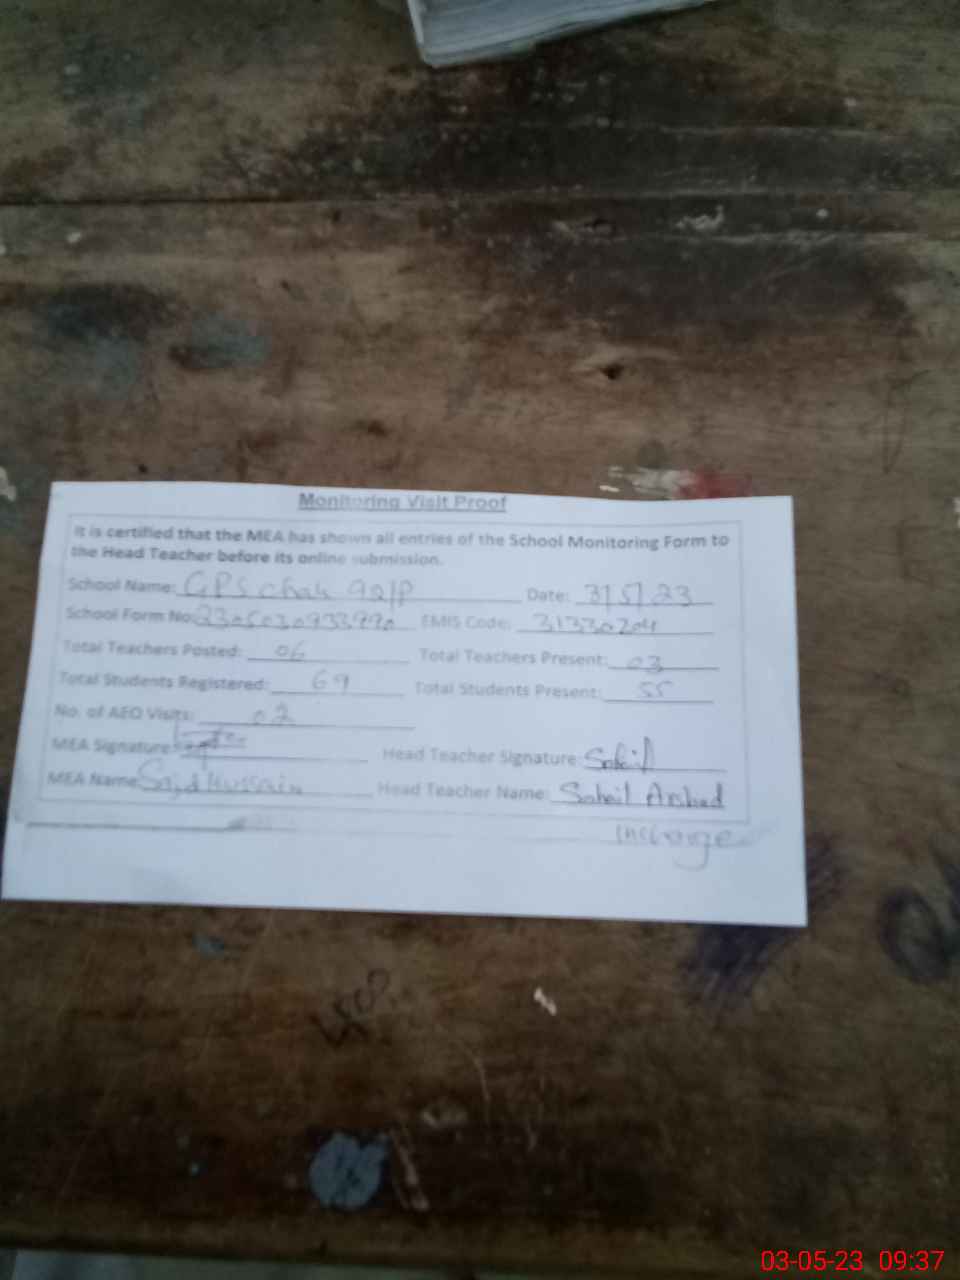 Monitoring Visit Proof
It is certified that the MEA has shown all entries of the School Monitoring Form to
the Head Teacher before its online submission.
School Name: GPS chak 92/P Date: 3/5/23
School Form No: EMIS Code: 31330204
Total Teachers Posted: 06 Total Teachers Present: 03
Total Students Registered: 69 Total Students Present: 55
No. of AEO Visits: 02
MEA Signature: Head Teacher Signature: Sohail
MEA Name: Sajid Hussain Head Teacher Name: Sohail Arshad
Incharge
03-05-23 09:37